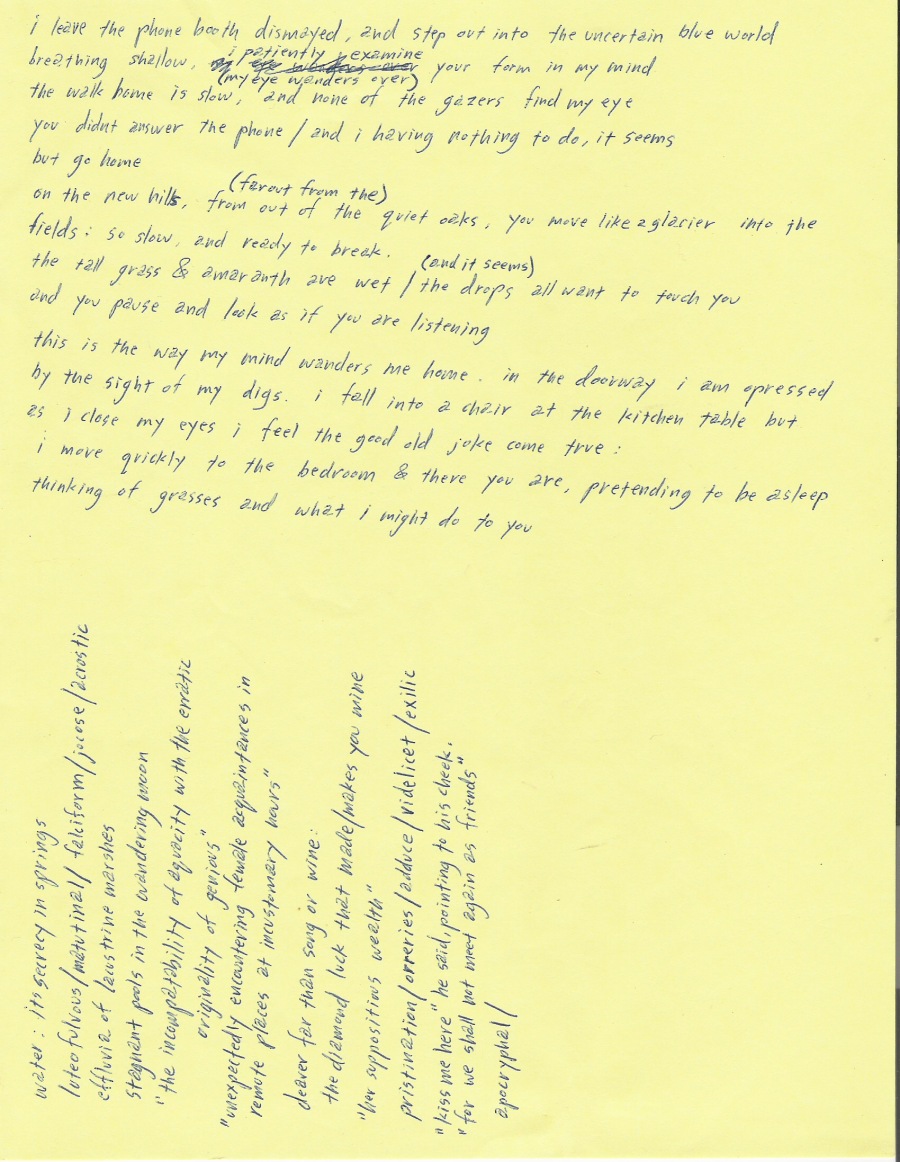 i leave the phone booth dismayed, and step out into the uncertain blue world
i patiently examine
breathing shallow, your form in my mind
(my eye wanders over)
the walk home is slow, and none of the gazers find my eye
you didnt answer the phone / and i having nothing to do, it seems
but go home
(farout from the)
on the new hills, from out of the quiet oaks, you move like a glacier into the
fields: so slow, and ready to break.
(and it seems)
the tall grass & amaranth are wet / the drops all want to touch you
and you pause and look as if you are listening
this is the way my mind wanders me home. in the doorway i am opressed
by the sight of my digs. i fall into a chair at the kitchen table but
as i close my eyes i feel the good old joke come true:
i move quickly to the bedroom & there you are, pretending to be asleep
thinking of grasses and what i might do to you
water: its secrecy in springs
luteofulvous/matutinal/falciform/jocose/acrostic
effluvia of lacustrine marshes
stagnant pools in the wandering moon
"the incompatability of equacity with the erratic
originality of genious"
"unexpectedly encountering female acquaintances in
remote places at incustomary hours"
dearer far than song or wine:
the diamond luck that made/makes you mine
"her suppositious wealth"
pristination/orreries/adduce/videlicet/exilic
"kiss me here" he said, pointing to his cheek.
"for we shall not meet again as friends"
apocryphal/